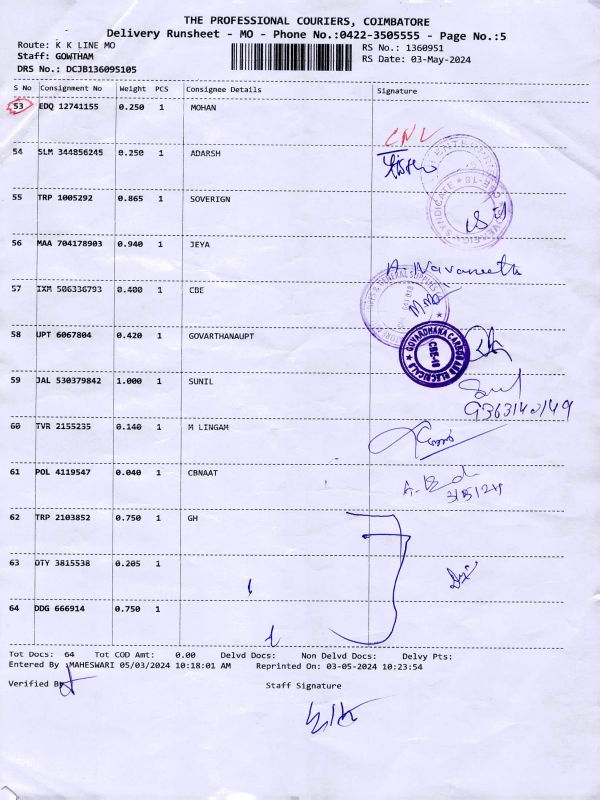 THE PROFESSIONAL COURIERS, COIMBATORE
Delivery Runsheet - MO - Phone No.:0422-3505555 - Page No.:5
Route: K K LINE MO RS No.: 1360951
Staff: GOWTHAM RS Date: 03-May-2024
DRS No.: DCJB136095105
S No Consignment No Weight PCS Consignee Details Signature
53 EDQ 12741155 0.250 1 MOHAN
CNL
54 SLM 344856245 0.250 1 ADARSH
55 TRP 1005292 0.865 1 SOVERIGN
56 MAA 704178903 0.940 1 JEYA
A. Navaneetha
57 IXM 506336793 0.400 1 CBE
58 UPT 6067804 0.420 1 GOVARTHANAUPT
GOVARDHANA CARBON AND ELECTRICALS
CBE-18
59 JAL 530379842 1.000 1 SUNIL
60 TVR 2155235 0.140 1 M LINGAM
61 POL 4119547 0.040 1 CBNAAT
3/5/24
62 TRP 2103852 0.750 1 GH
63 OTY 3815538 0.205 1
64 DDG 666914 0.750 1
Tot Docs: 64 Tot COD Amt: 0.00 Delvd Docs: Non Delvd Docs: Delvy Pts:
Entered By :MAHESWARI 05/03/2024 10:18:01 AM Reprinted On: 03-05-2024 10:23:54
Verified By Staff Signature